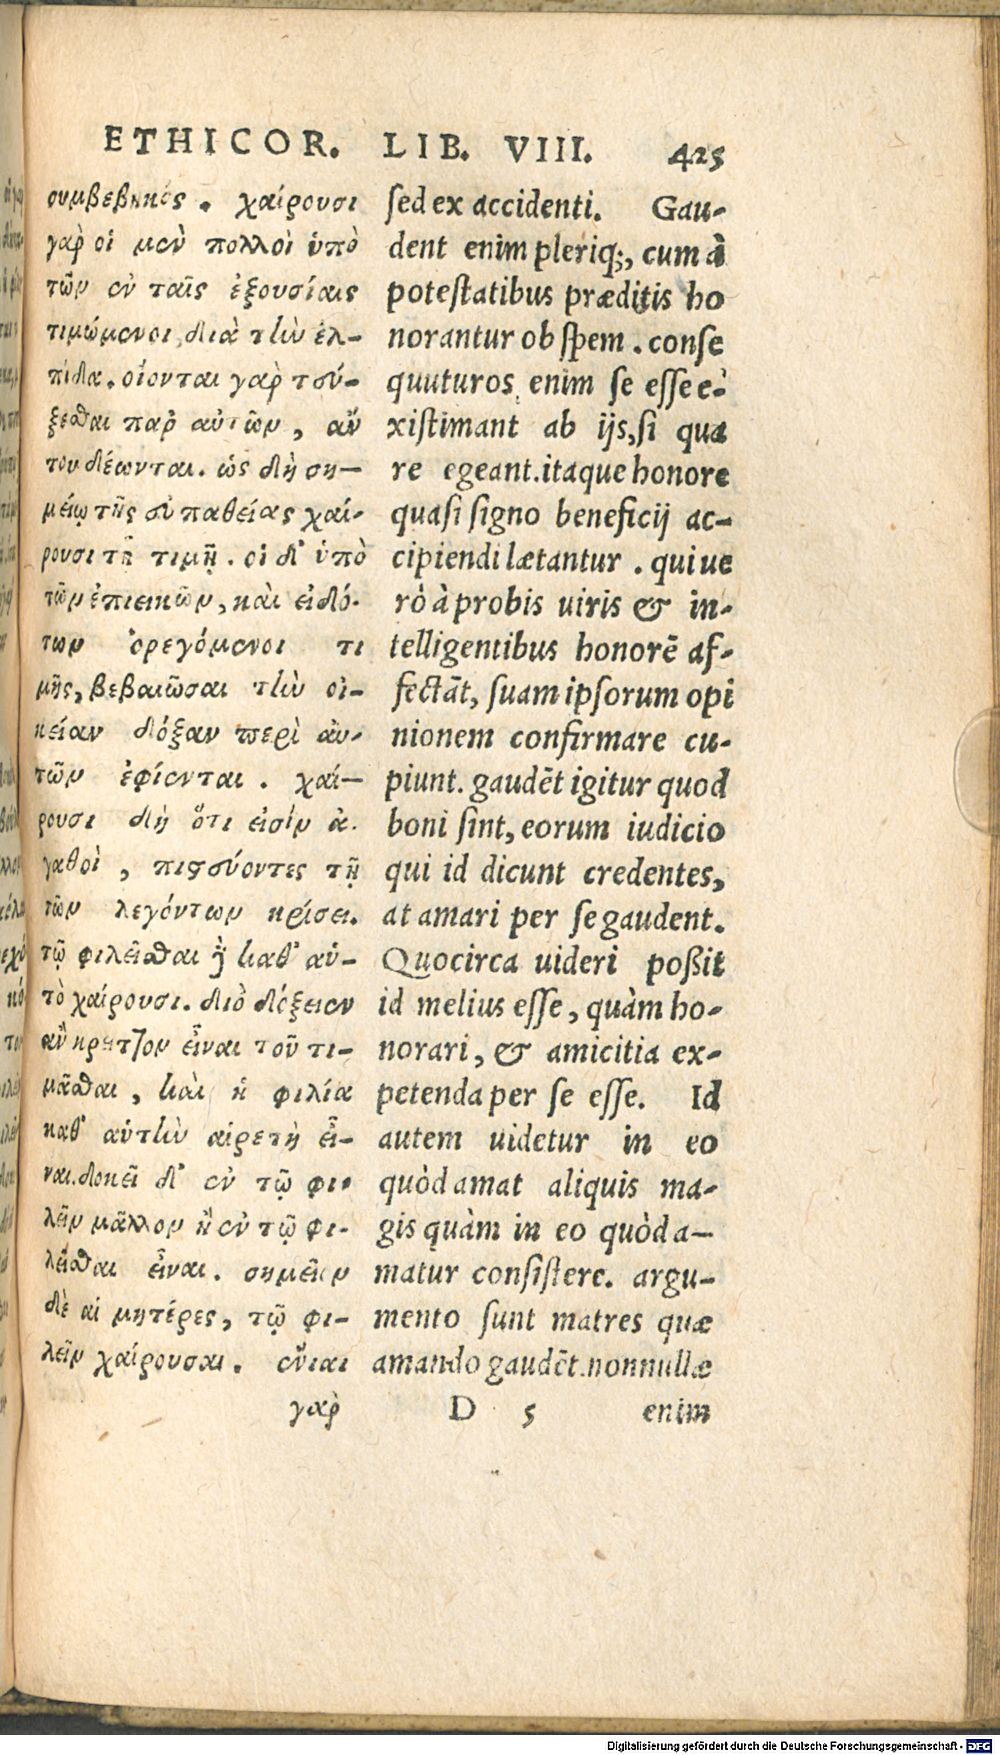 ETHICOR. LIB. VIII. 425
συμβεβηκός. χαίρουσι
γὰρ οἱ μὲν πολλοὶ ὑπὸ
τῶν ἐν ταῖς ἐξουσίαις
τιμώμενοι, διὰ τὴν ἐλ-
πίδα. οἴονται γὰρ τεύ-
ξεσθαι παρ' αὐτῶν, ἄν
του δέωνται. ὡς δὴ ση-
μείῳ τῆς εὐπαθείας χαί-
ρουσι τῇ τιμῇ. οἱ δ' ὑπὸ
τῶν ἐπιεικῶν, καὶ εἰδό-
των ὀρεγόμενοι τι
μῆς, βεβαιῶσαι τὴν οἰ-
κείαν δόξαν περὶ αὑ-
τῶν ἐφίενται. χαί-
ρουσι δὴ ὅτι εἰσὶν ἀ-
γαθοὶ, πιστεύοντες τῇ
τῶν λεγόντων κρίσει.
τῷ φιλεῖσθαι δὲ καθ' αὑ-
τὸ χαίρουσι. διὸ δόξειεν
ἂν κρεῖττον εἶναι τοῦ τι-
μᾶσθαι, καὶ ἡ φιλία
καθ' αὑτὴν αἱρετὴ εἶ-
ναι. δοκεῖ δ' ἐν τῷ φι-
λεῖν μᾶλλον ἢ ἐν τῷ φι-
λεῖσθαι εἶναι. σημεῖον
δὲ αἱ μητέρες, τῷ φι-
λεῖν χαίρουσαι. ἔνιαι
γὰρ
sed ex accidenti. Gau-
dent enim pleriq;, cum à
potestatibus præditis ho
norantur ob spem. conse
quuturos enim se esse e-
xistimant ab ijs, si qua
re egeant. itaque honore
quasi signo beneficij ac-
cipiendi lætantur. qui ue
rò à probis uiris & in-
telligentibus honorẽ af-
fectãt, suam ipsorum opi
nionem confirmare cu-
piunt. gaudẽt igitur quod
boni sint, eorum iudicio
qui id dicunt credentes,
at amari per se gaudent.
Quocirca uideri poßit
id melius esse, quàm ho-
norari, & amicitia ex-
petenda per se esse. Id
autem uidetur in eo
quòd amat aliquis ma-
gis quàm in eo quòd a-
matur consistere. argu-
mento sunt matres quæ
amando gaudẽt. nonnullæ
D 5 enim
Digitalisierung gefördert durch die Deutsche Forschungsgemeinschaft - DFG